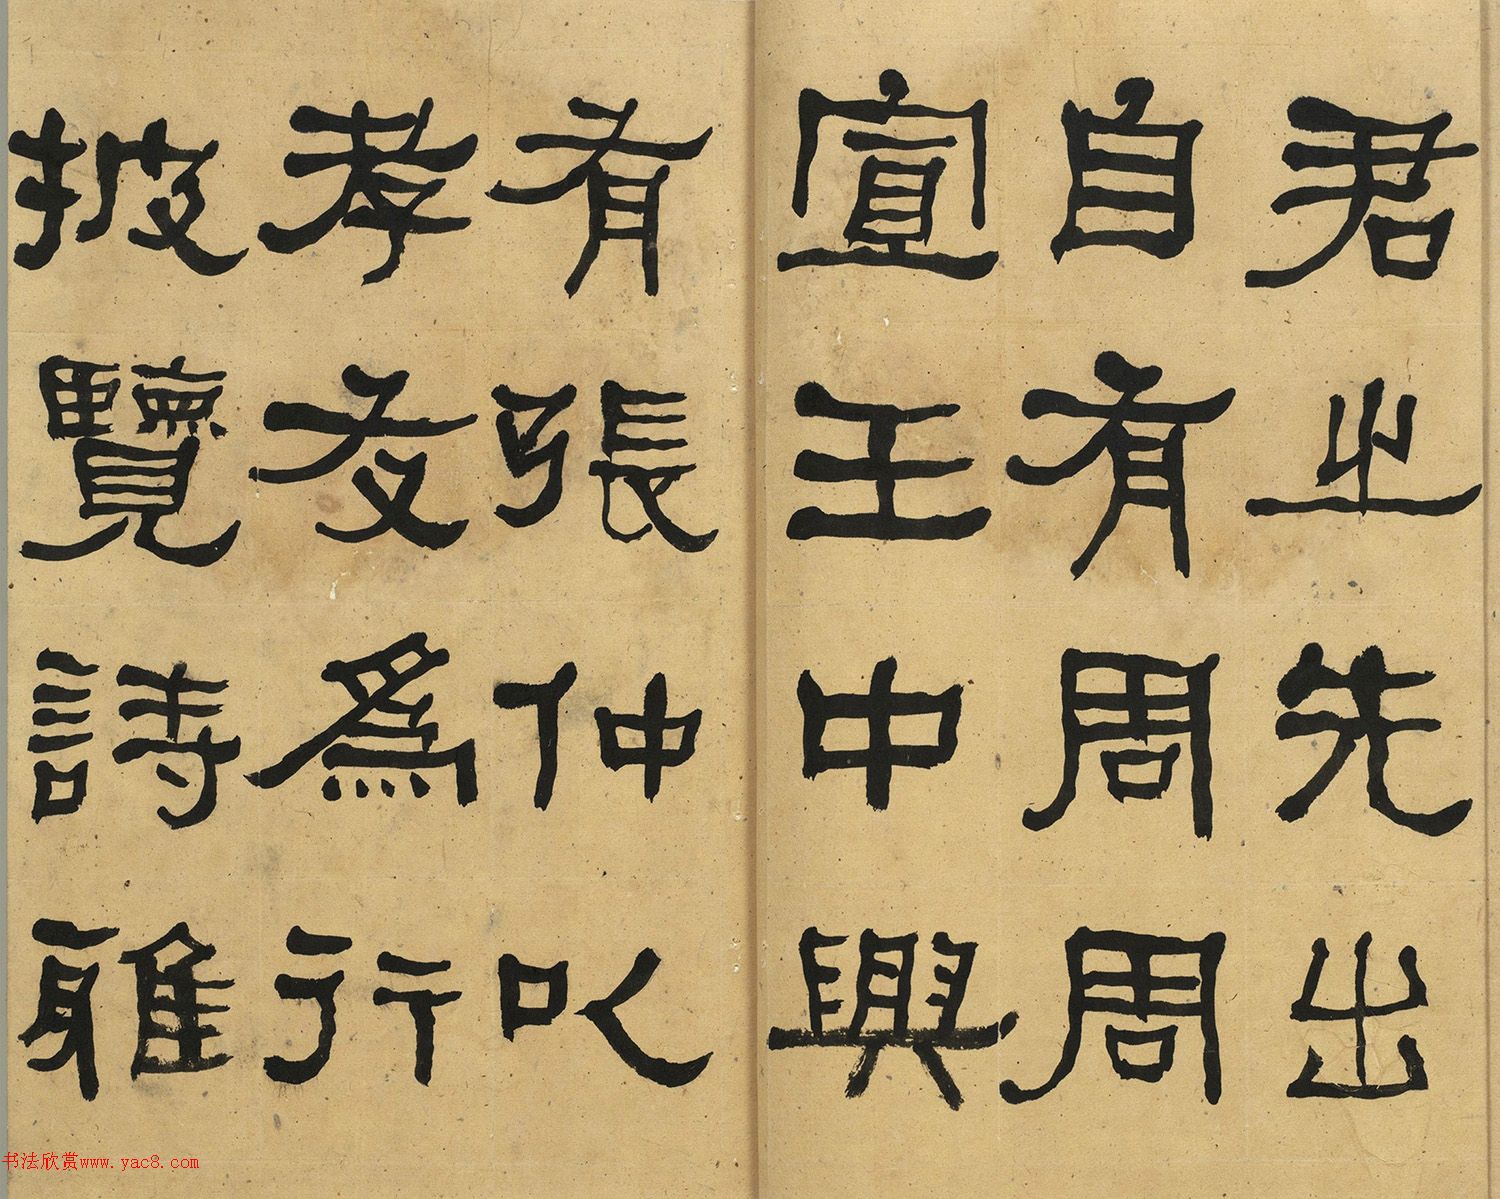 君之先出
自有周周
宣王中興
有張仲以
孝友為行
披覽詩雅
书法欣赏www.yac8.com